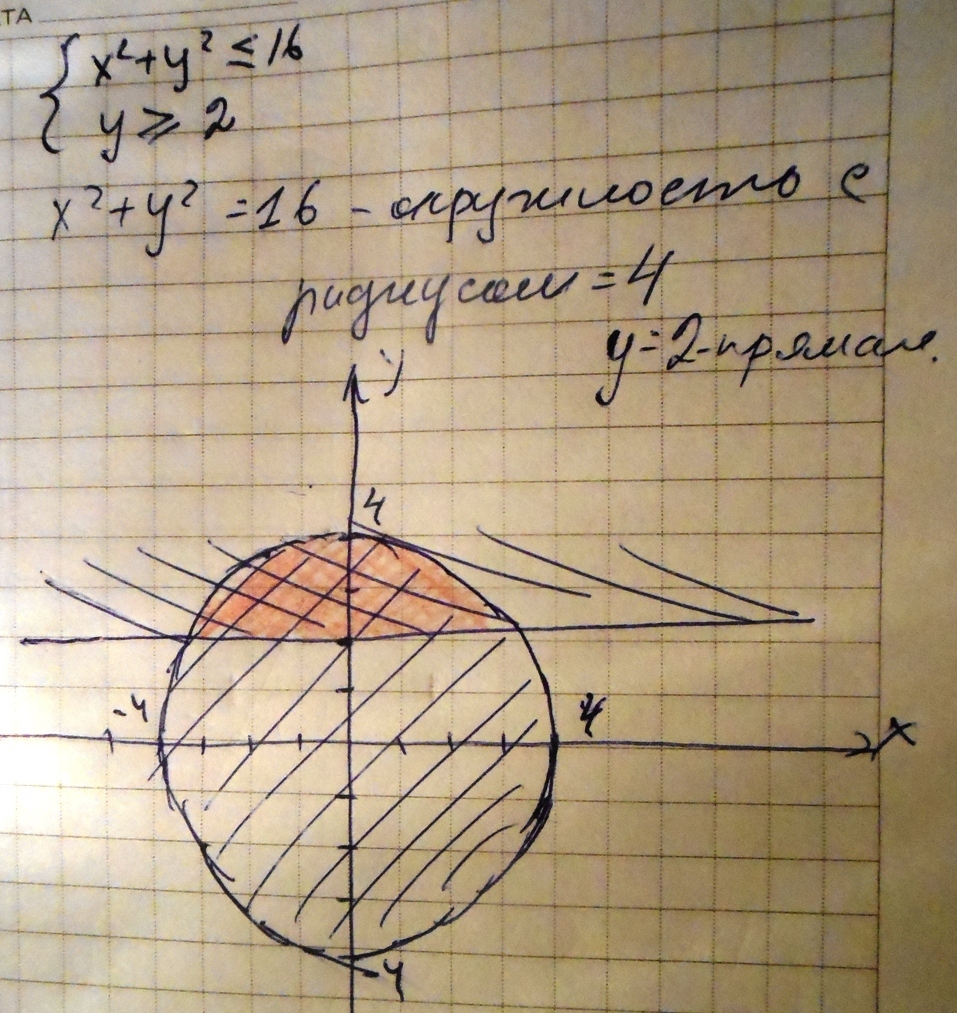 ТА
{ x² + y² ≤ 16
y ≥ 2
x² + y² = 16 - окружность с
радиусом = 4
y = 2 - прямая.
y
4
-4
4
x
-4